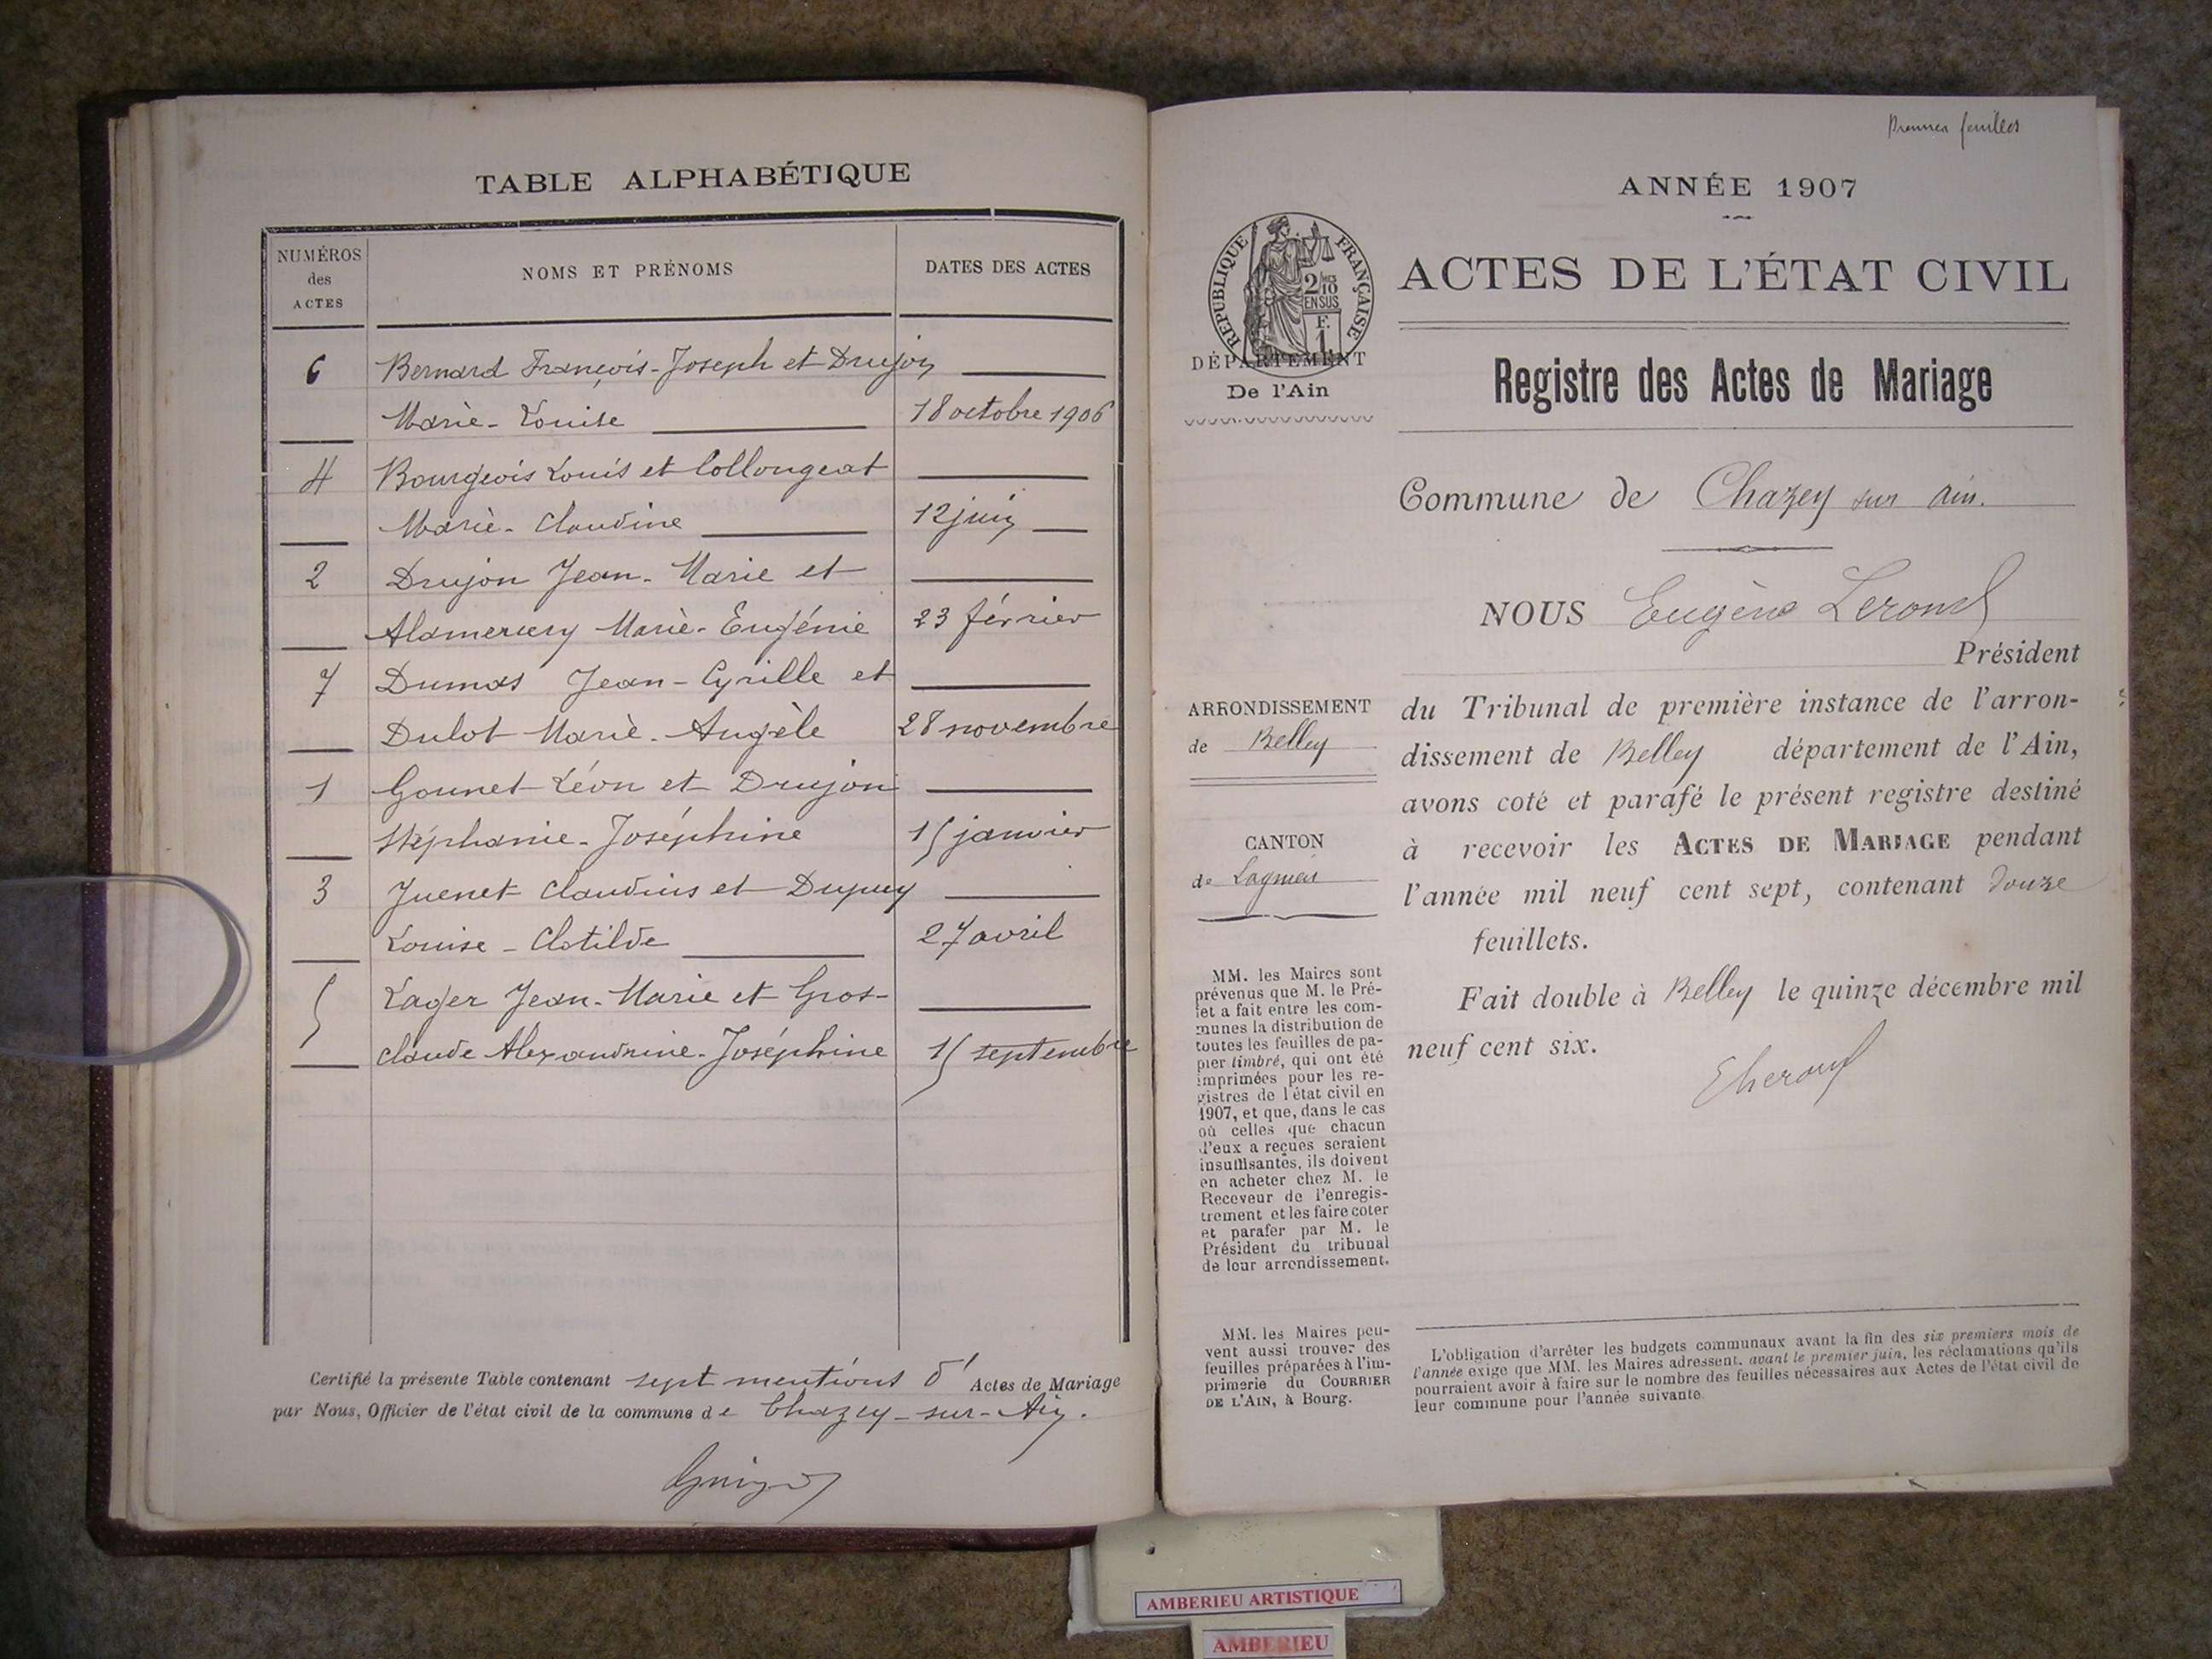 TABLE ALPHABÉTIQUE
NUMÉROS
des
ACTES
NOMS ET PRÉNOMS
DATES DES ACTES
6 Bernard François-Joseph et Drujon
Marie-Louise 18 octobre 1906
4 Bourgeois Louis et Collongeat
Marie-Claudine 12 juin
2 Drujon Jean-Marie et
Alamercery Marie-Eugénie 23 février
7 Dumas Jean-Cyrille et
Dulot Marie-Angèle 28 novembre
1 Gonnet Léon et Drujon
Stéphanie-Joséphine 15 janvier
3 Juenet Claudius et Dupuy
Louise-Clotilde 27 avril
5 Lager Jean-Marie et Gros-
claude Alexandrine-Joséphine 15 septembre
Certifié la présente Table contenant sept mentions d' Actes de Mariage
par Nous, Officier de l'état civil de la commune de Chazey-sur-Ain.
Premier feuillet
ANNÉE 1907
RÉPUBLIQUE FRANÇAISE
2/10
EN SUS
F.
1
ACTES DE L'ÉTAT CIVIL
DÉPARTEMENT
De l'Ain
Registre des Actes de Mariage
Commune de Chazey sur Ain.
NOUS Eugène Lerond
Président
ARRONDISSEMENT
de Belley
CANTON
de Lagnieu
du Tribunal de première instance de l'arron-
dissement de Belley département de l'Ain,
avons coté et parafé le présent registre destiné
à recevoir les ACTES DE MARIAGE pendant
l'année mil neuf cent sept, contenant douze
feuillets.
Fait double à Belley le quinze décembre mil
neuf cent six.
MM. les Maires sont
prévenus que M. le Pré-
fet a fait entre les com-
munes la distribution de
toutes les feuilles de pa-
pier timbré, qui ont été
imprimées pour les re-
gistres de l'état civil en
1907, et que, dans le cas
où celles que chacun
d'eux a reçues seraient
insuffisantes, ils doivent
en acheter chez M. le
Receveur de l'enregis-
trement et les faire coter
et parafer par M. le
Président du tribunal
de leur arrondissement.
MM. les Maires peu-
vent aussi trouver des
feuilles préparées à l'im-
primerie du COURRIER
DE L'AIN, à Bourg.
L'obligation d'arrêter les budgets communaux avant la fin des six premiers mois de
l'année exige que MM. les Maires adressent, avant le premier juin, les réclamations qu'ils
pourraient avoir à faire sur le nombre des feuilles nécessaires aux Actes de l'état civil de
leur commune pour l'année suivante.
AMBERIEU ARTISTIQUE
AMBERIEU